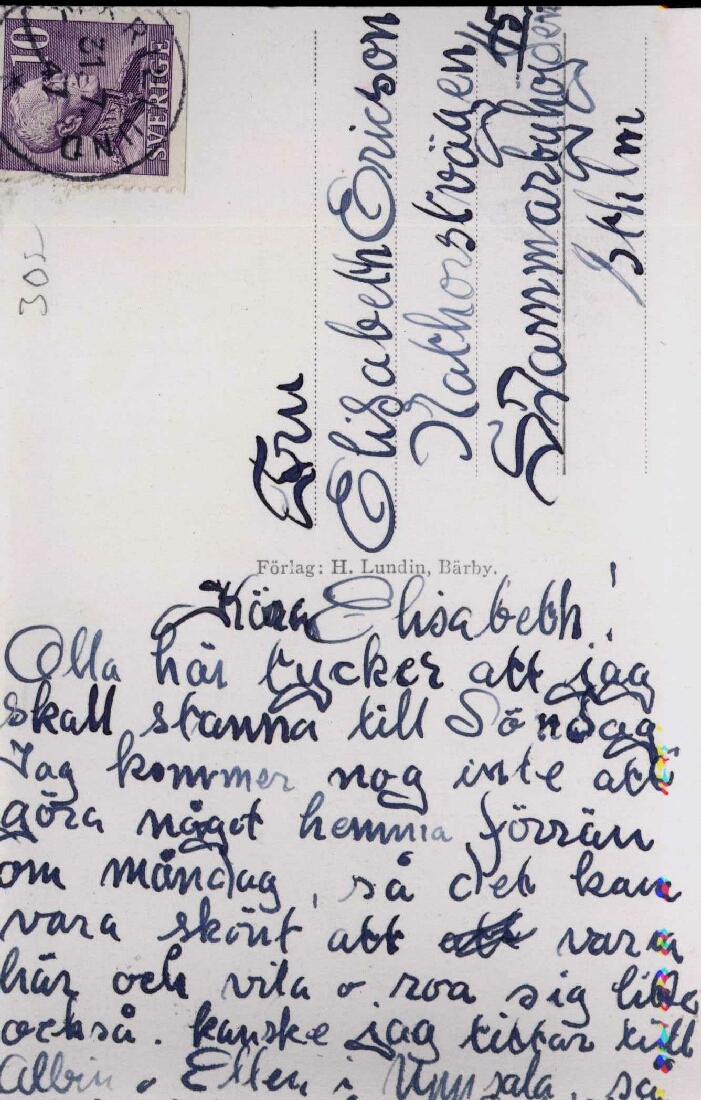 10
SVERIGE
21 7 47
305
Fru
Elisabeth Ericson
Nathorstvägen 45
Hammarbyhöjden
Sthlm
Förlag: H. Lundin, Bärby.
Kära Elisabeth!
Olla här tycker att jag
skall stanna till Söndag
Jag kommer nog inte att
göra något hemma förrän
om måndag, så det kan
vara skönt att vara
här och vila o. roa sig litte
också. kanske jag tittar till
Albin o Ellen i Uppsala, så